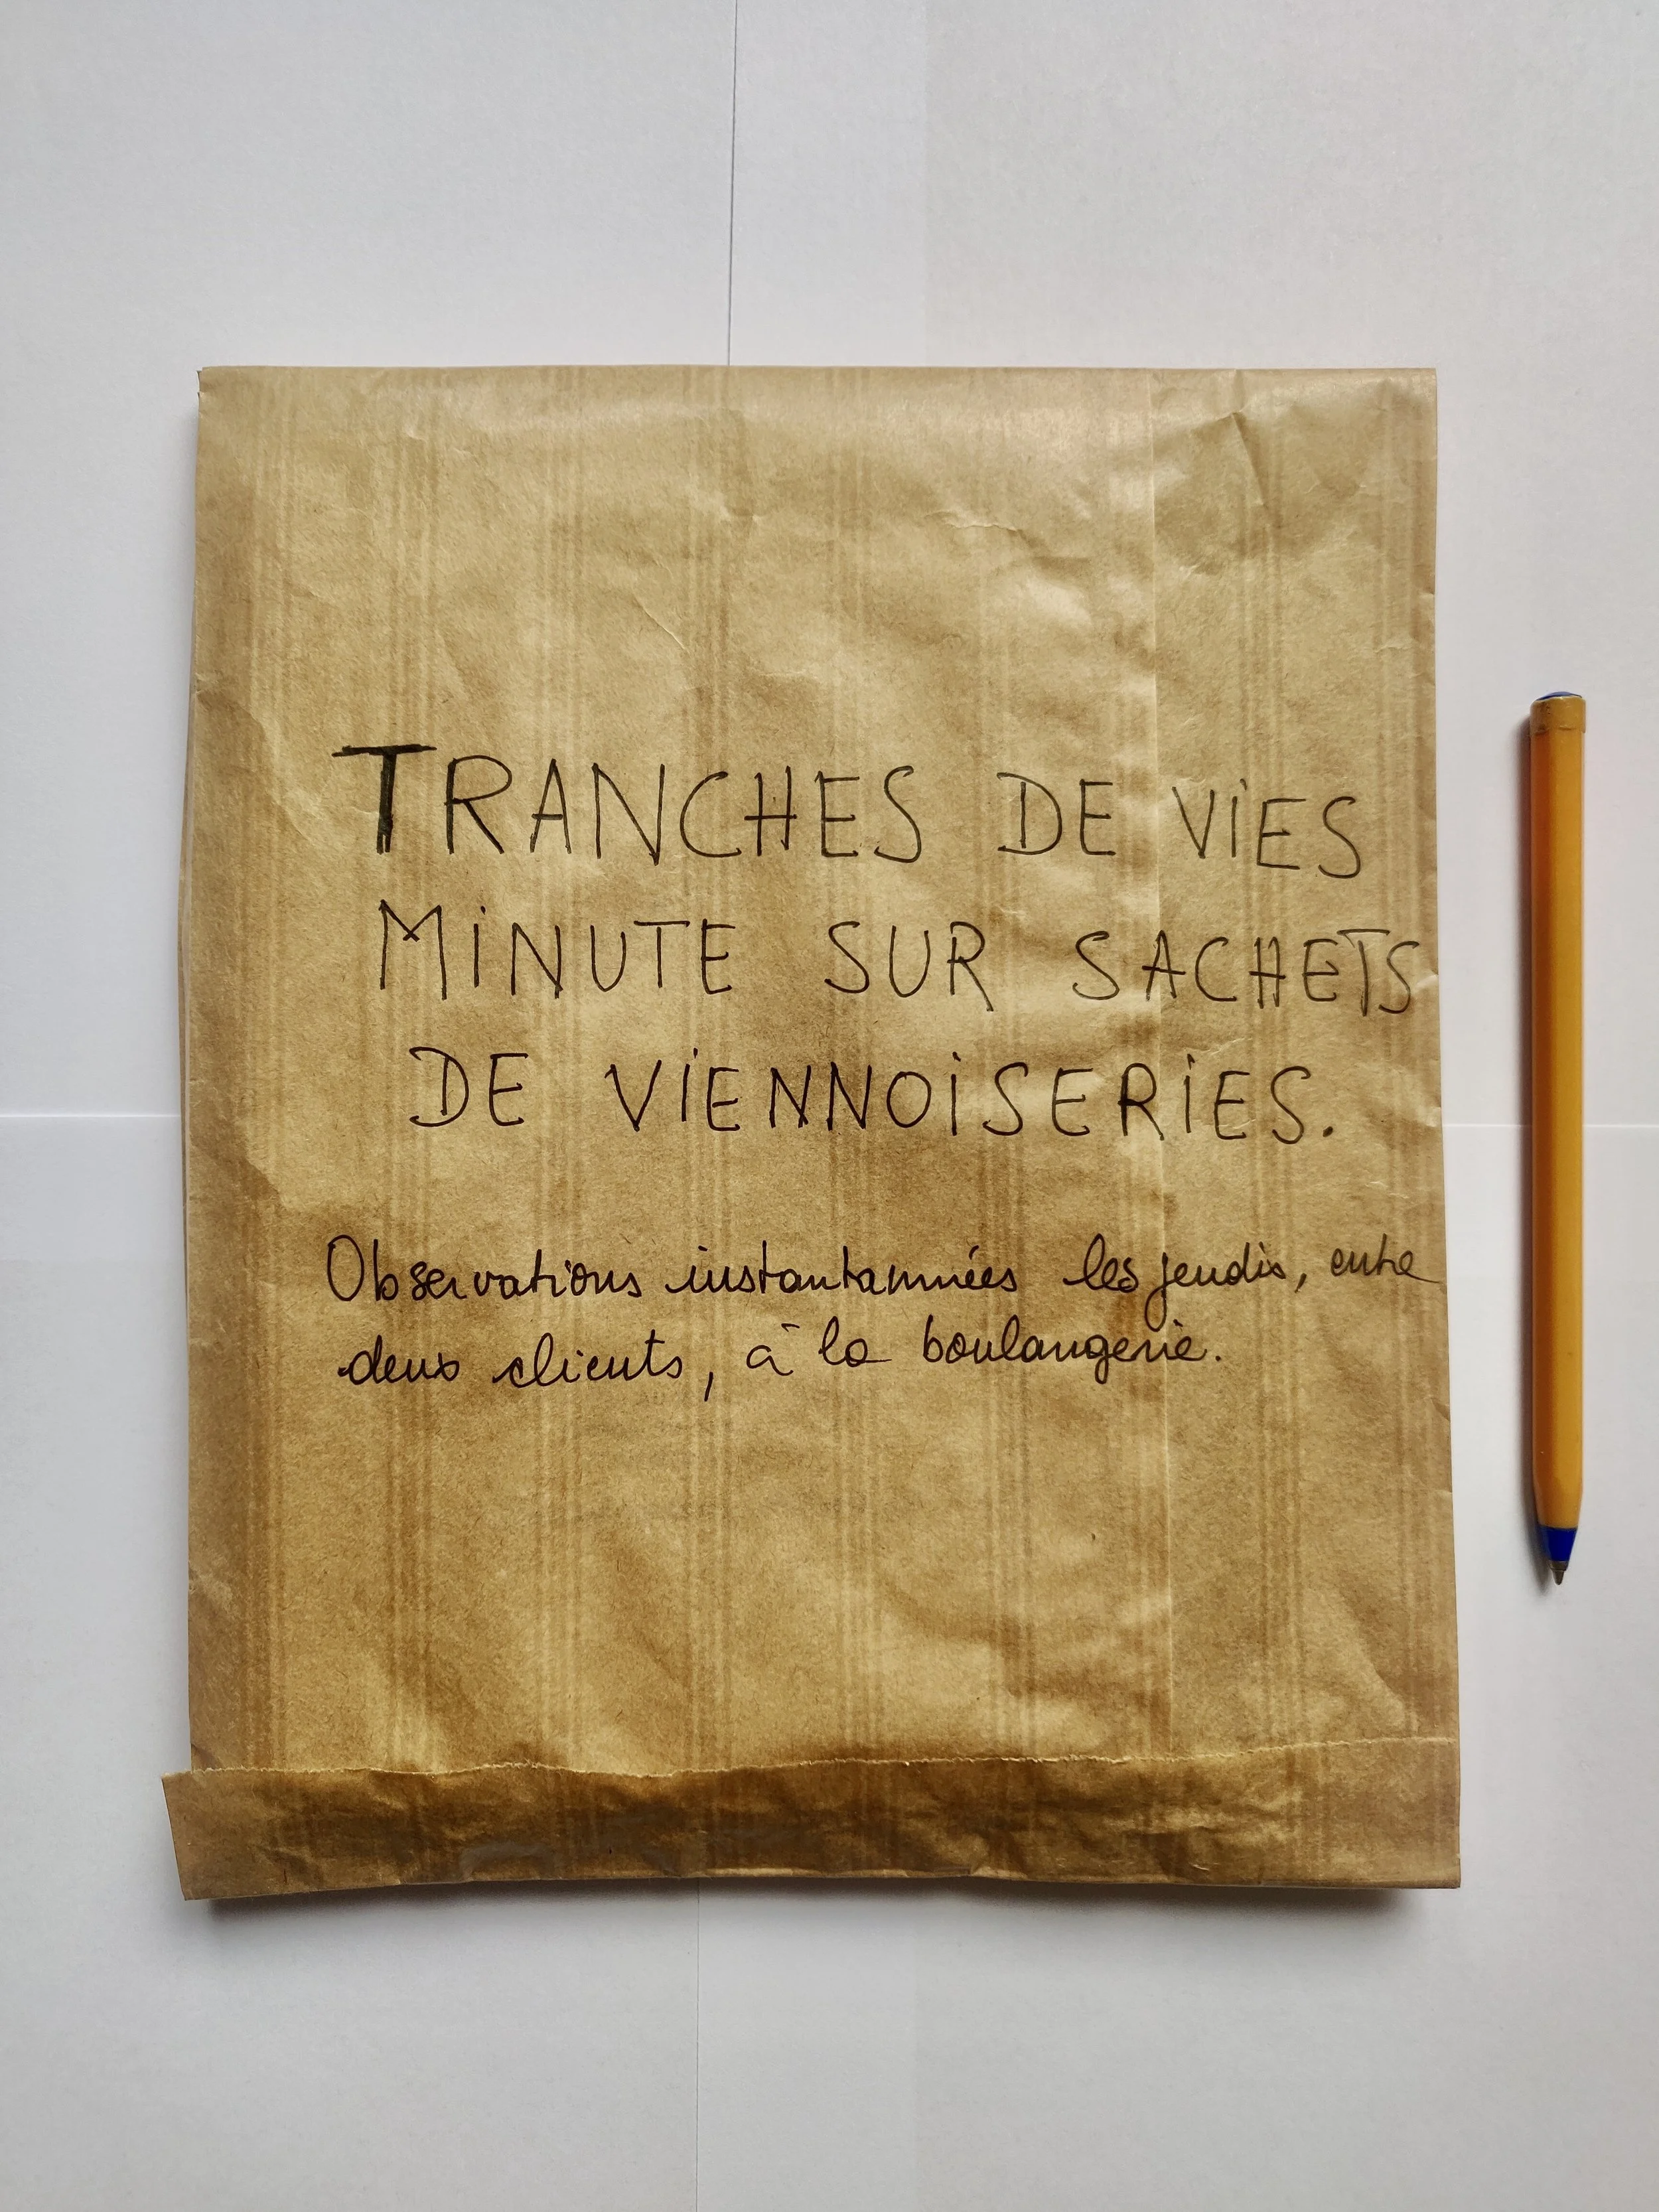 TRANCHES DE ViES
MiNUTE SUR SACHETS
DE ViENNOiSERiES.
Observations instantannées les jeudis, entre
deux clients, à la boulangerie.